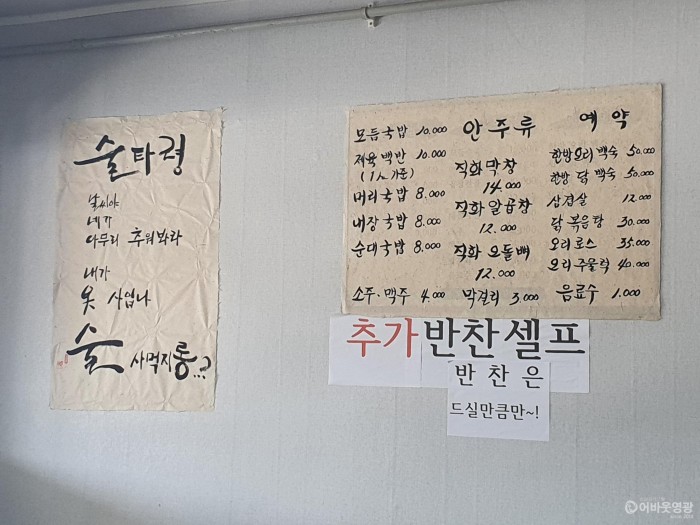 술타령
날씨야
네가
아무리 추워봐라
내가
옷 사입나
술 사먹지롱..?
모듬국밥 10.000
제육백반 10.000
(1人 기준)
머리국밥 8.000
내장국밥 8.000
순대국밥 8.000
소주·맥주 4.000
안주류
직화막창
14.000
직화알곱창
12.000
직화오돌뼈
12.000
막걸리 3.000
예약
한방오리백숙 50.000
한방 닭 백숙 50.000
삼겹살 12.000
닭볶음탕 30.000
오리로스 35.000
오리주물럭 40.000
음료수 1.000
추가반찬셀프
반찬은
드실만큼만~!
어바웃영광